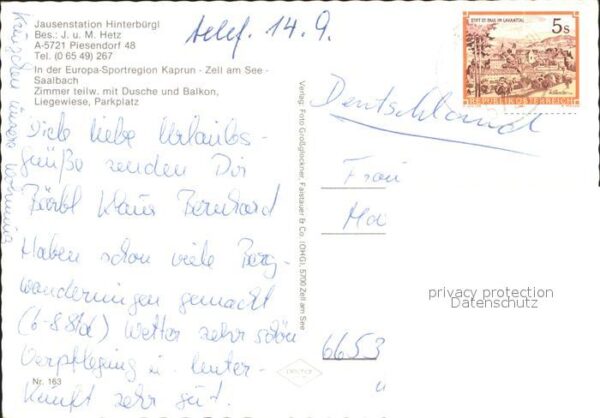 Jausenstation Hinterbürgl
Bes.: J. u. M. Hetz
A-5721 Piesendorf 48
Tel. (0 65 49) 267
In der Europa-Sportregion Kaprun - Zell am See -
Saalbach
Zimmer teilw. mit Dusche und Balkon,
Liegewiese, Parkplatz
telef. 14.9.
Viele liebe Urlaubs-
grüße senden Dir
Bärbl Klaus Bernhard
Haben schon viele Berg-
wanderungen gemacht
(6-8 Std) Wetter sehr schön
Verpflegung u. Unter-
kunft sehr gut.
Nr. 163
Verlag: Foto Großglockner, Faistauer & Co. (OHG), 5700 Zell am See
STIFT ST. PAUL IM LAVANTTAL
5 S
REPUBLIK ÖSTERREICH
Deutschland
Frau
6653
privacy protection
Datenschutz